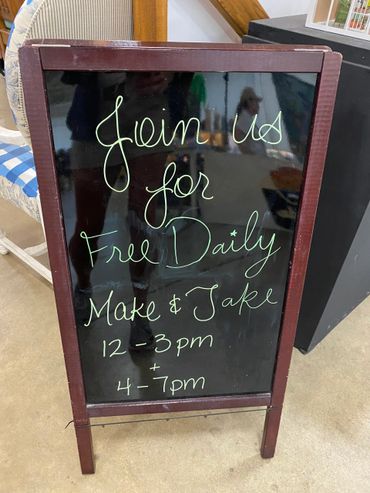 Join us
for
Free Daily
Make & Take
12 - 3pm
+
4 - 7pm